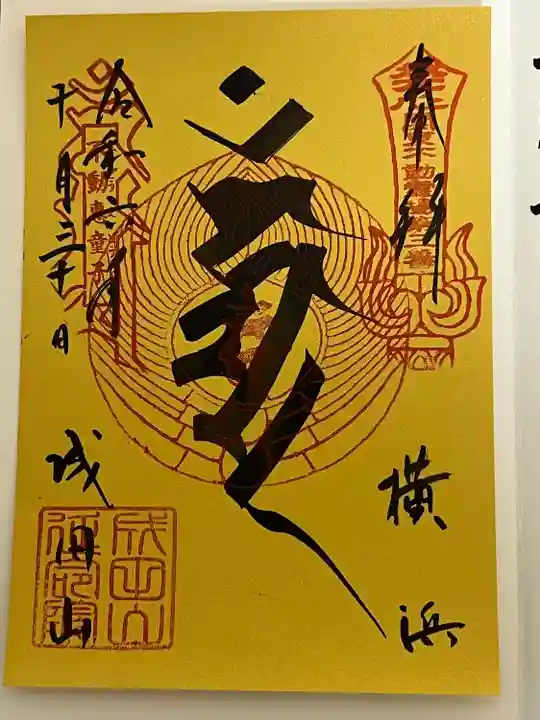 奉拝
関東不動霊場第三番
横浜
令和六年
十月三十日
不動恵童子
成田山
成田山
延命院